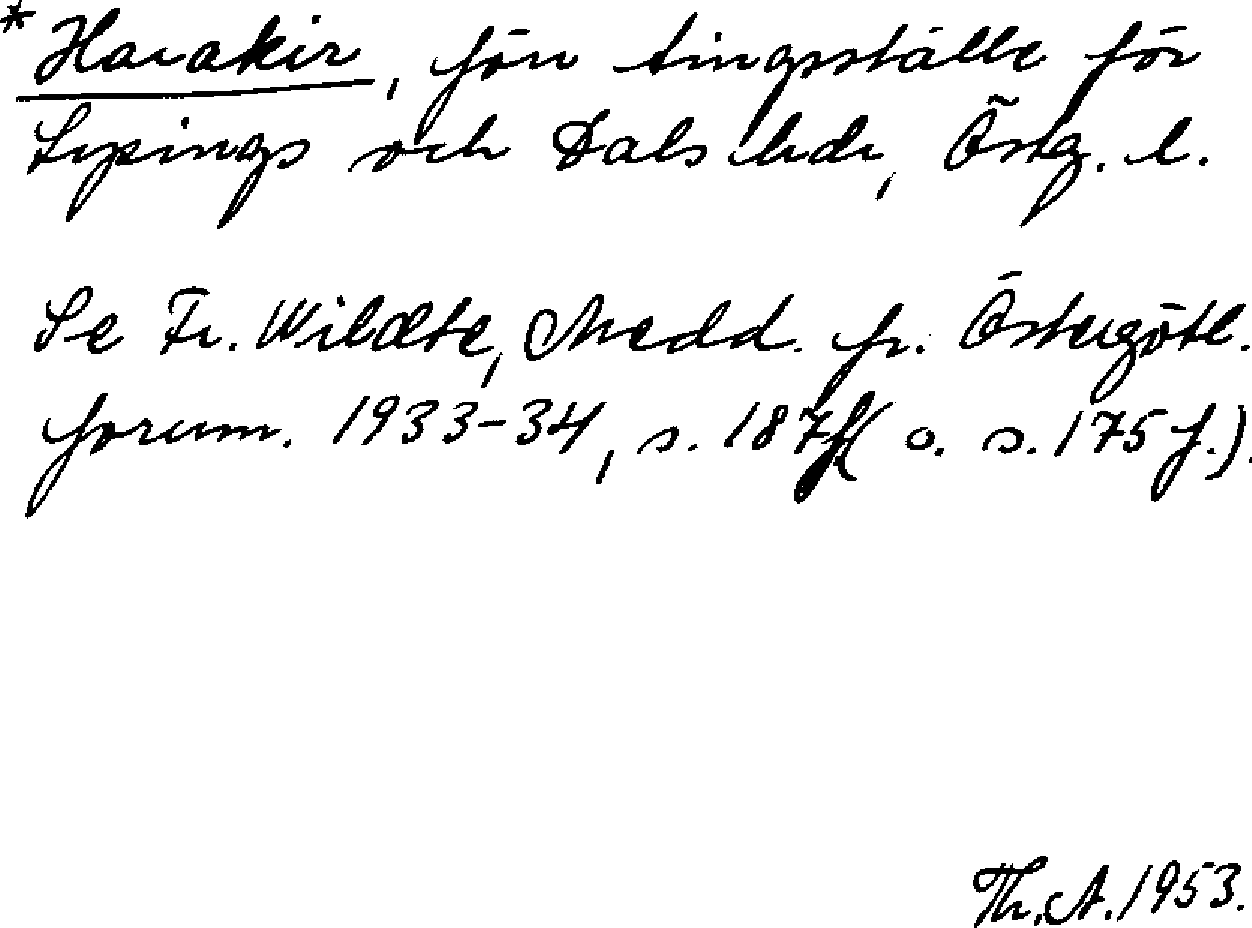 * Harakir, förr tingsställe för
Lysings och Dals hdr, Östg. l.
Se Fr. Wildte, Medd. fr. Östergötl.
fornm. 1933-34, s. 187f( o. s. 175 f.).
Th. A. 1953.